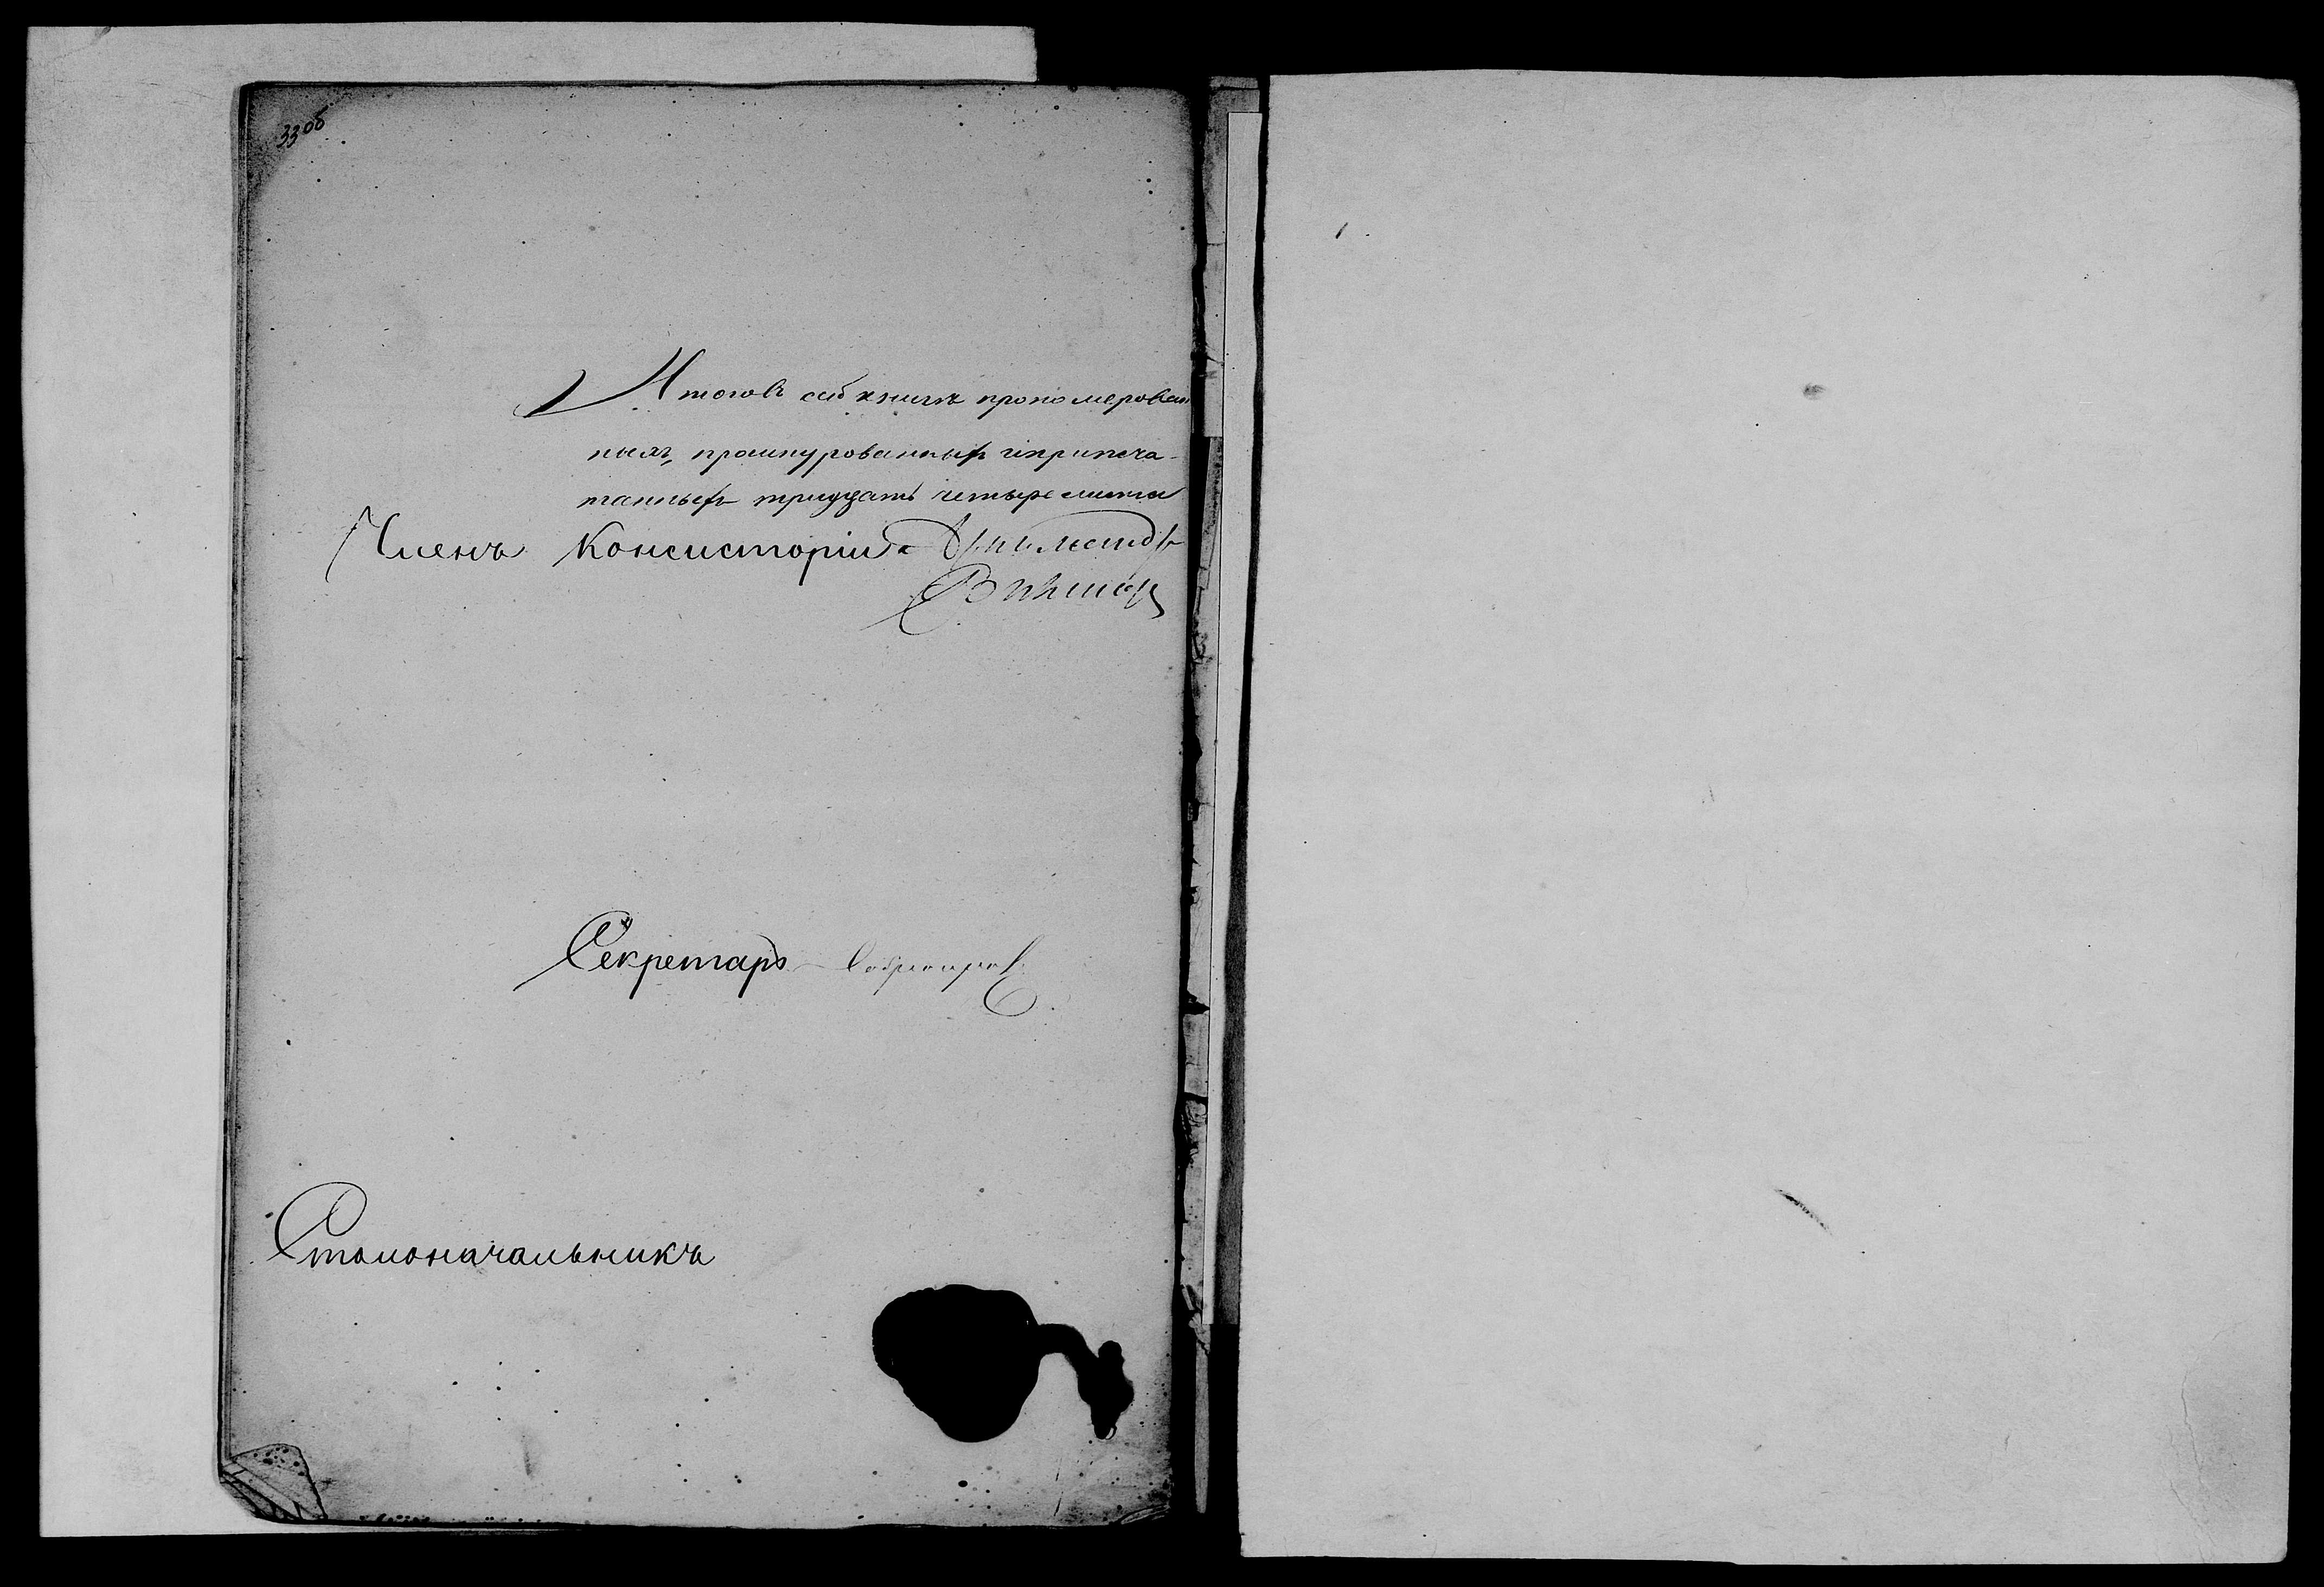 33об
Итого въ сей книгѣ прономерован
ныхъ, прошнурованныхъ и припеча-
танныхъ тридцать четыре листа
Членъ Консисторіи Архимандр
Викторъ
Секретарь
Столоначальникъ